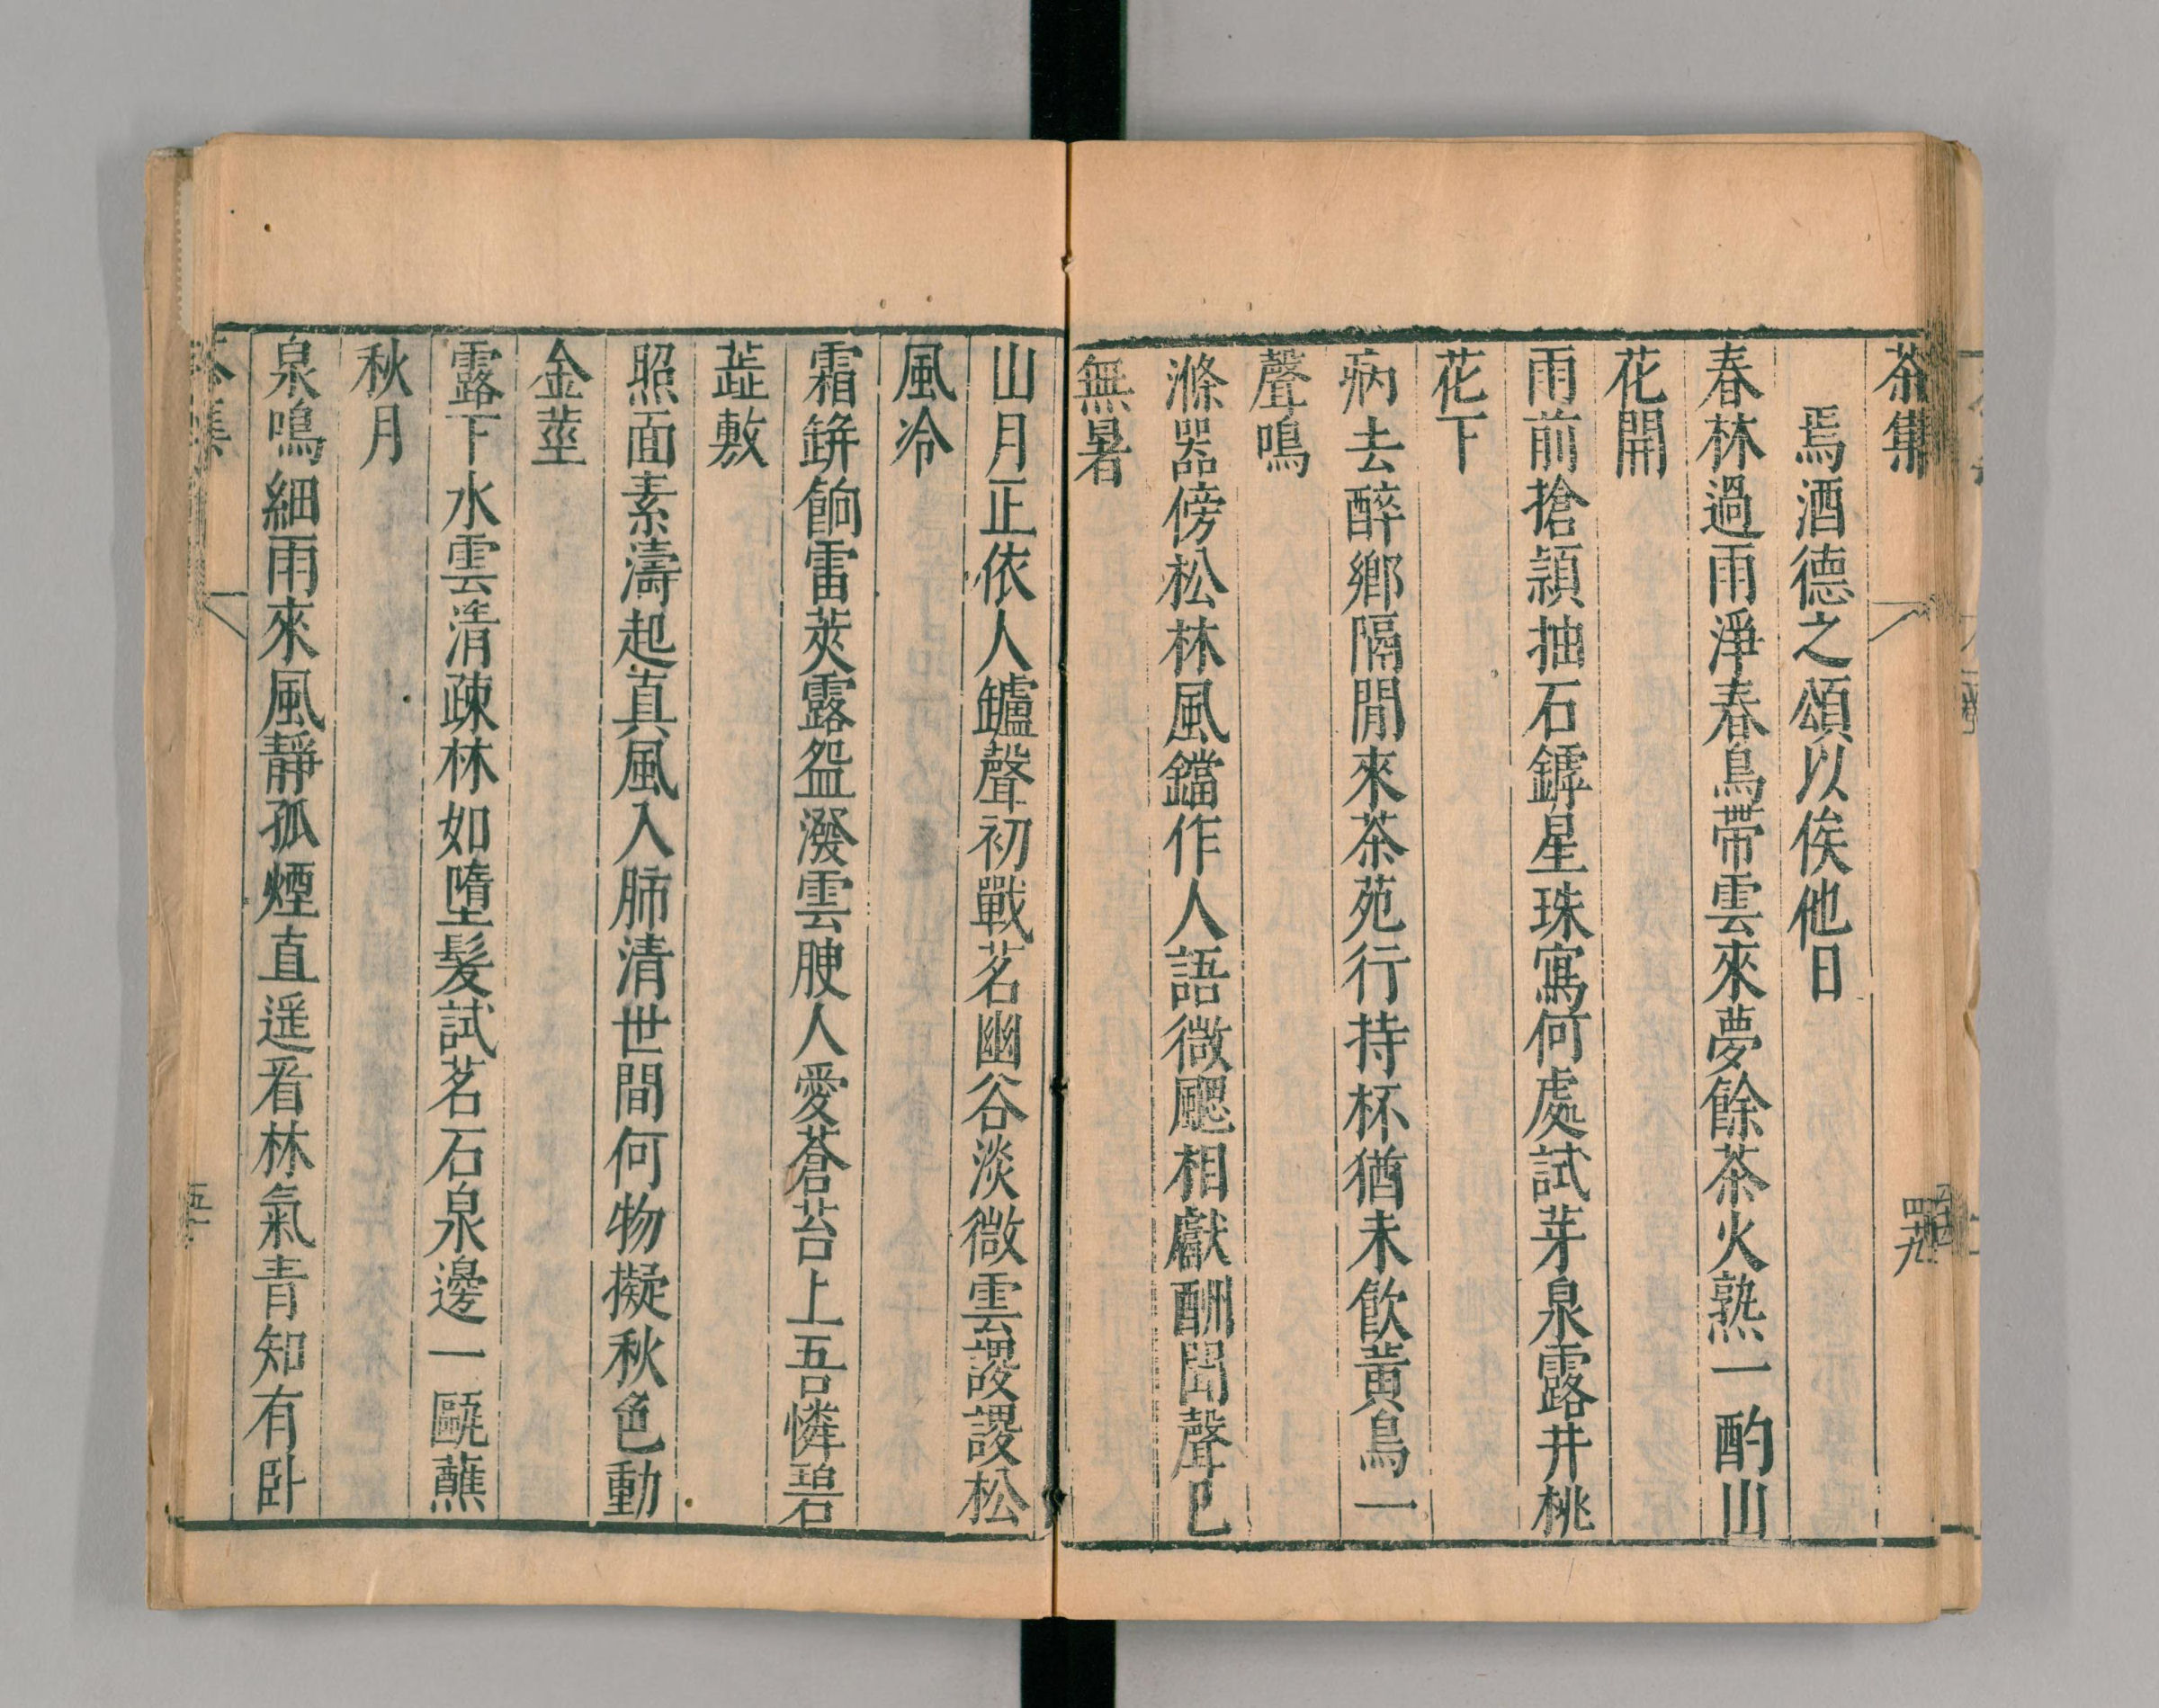 茶集
四九
焉酒德之頌以俟他日
春林過雨淨春鳥帶雲來夢餘茶火熟一酌山
花開
雨前搶頴抽石鏬星珠寫何處試芽泉露井桃
花下
病去醉鄉隔閒來茶苑行持杯猶未飲黃鳥一
聲鳴
滌器傍松林風鐺作人語微颸相獻酬聞聲已
無暑
山月正依人鑪聲初戰茗幽谷淡微雲謖謖松
風冷
霜缾餉雷莢露盌潑雲腴人愛蒼苔上吾憐碧
蕋敷
照面素濤起真風入肺清世間何物擬秋色動
金莖
露下水雲清疎林如墮髮試茗石泉邊一甌蘸
秋月
泉鳴細雨來風靜孤煙直遥看林氣青知有臥
茶集
五十